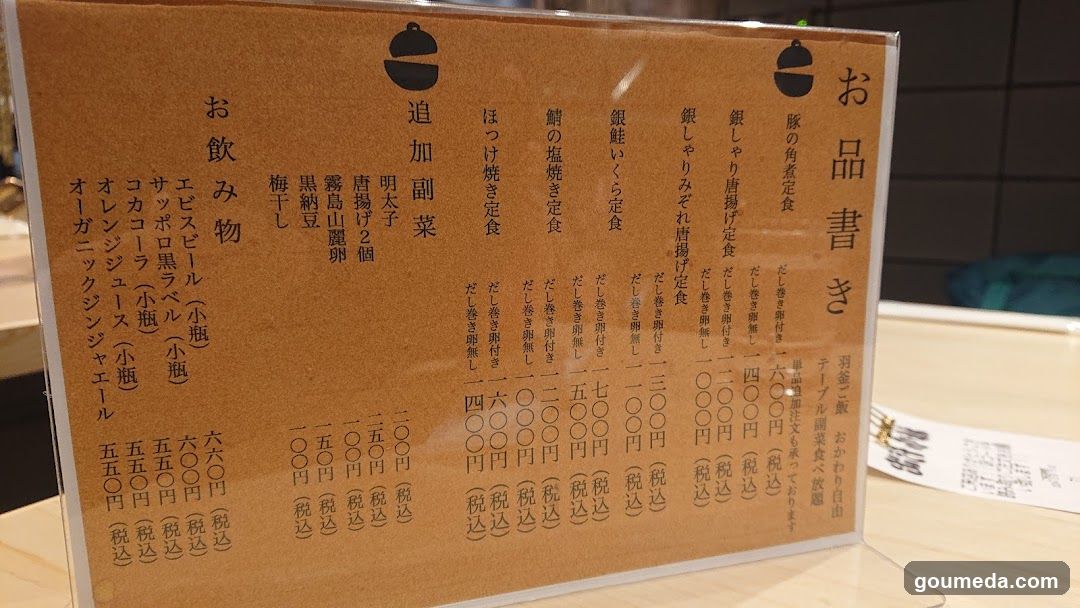 お品書き
羽釜ご飯 おかわり自由
テーブル副菜食べ放題
単品追加注文も承っております
豚の角煮定食 だし巻き卵付き 一六〇〇円(税込)
だし巻き卵無し 一四〇〇円(税込)
銀しゃり唐揚げ定食 だし巻き卵付き 一二〇〇円(税込)
だし巻き卵無し 一〇〇〇円(税込)
銀しゃりみぞれ唐揚げ定食 だし巻き卵付き 一三〇〇円(税込)
だし巻き卵無し 一一〇〇円(税込)
銀鮭いくら定食 だし巻き卵付き 一七〇〇円(税込)
だし巻き卵無し 一五〇〇円(税込)
鯖の塩焼き定食 だし巻き卵付き 一二〇〇円(税込)
だし巻き卵無し 一〇〇〇円(税込)
ほっけ焼き定食 だし巻き卵付き 一六〇〇円(税込)
だし巻き卵無し 一四〇〇円(税込)
追加副菜
明太子 二〇〇円(税込)
唐揚げ2個 二五〇円(税込)
霧島山麗卵 一〇〇円(税込)
黒納豆 一五〇円(税込)
梅干し 一〇〇円(税込)
お飲み物
エビスビール(小瓶) 六六〇円(税込)
サッポロ黒ラベル(小瓶) 六〇〇円(税込)
コカコーラ(小瓶) 五五〇円(税込)
オレンジジュース(小瓶) 五五〇円(税込)
オーガニックジンジャエール 五五〇円(税込)
goumeda.com